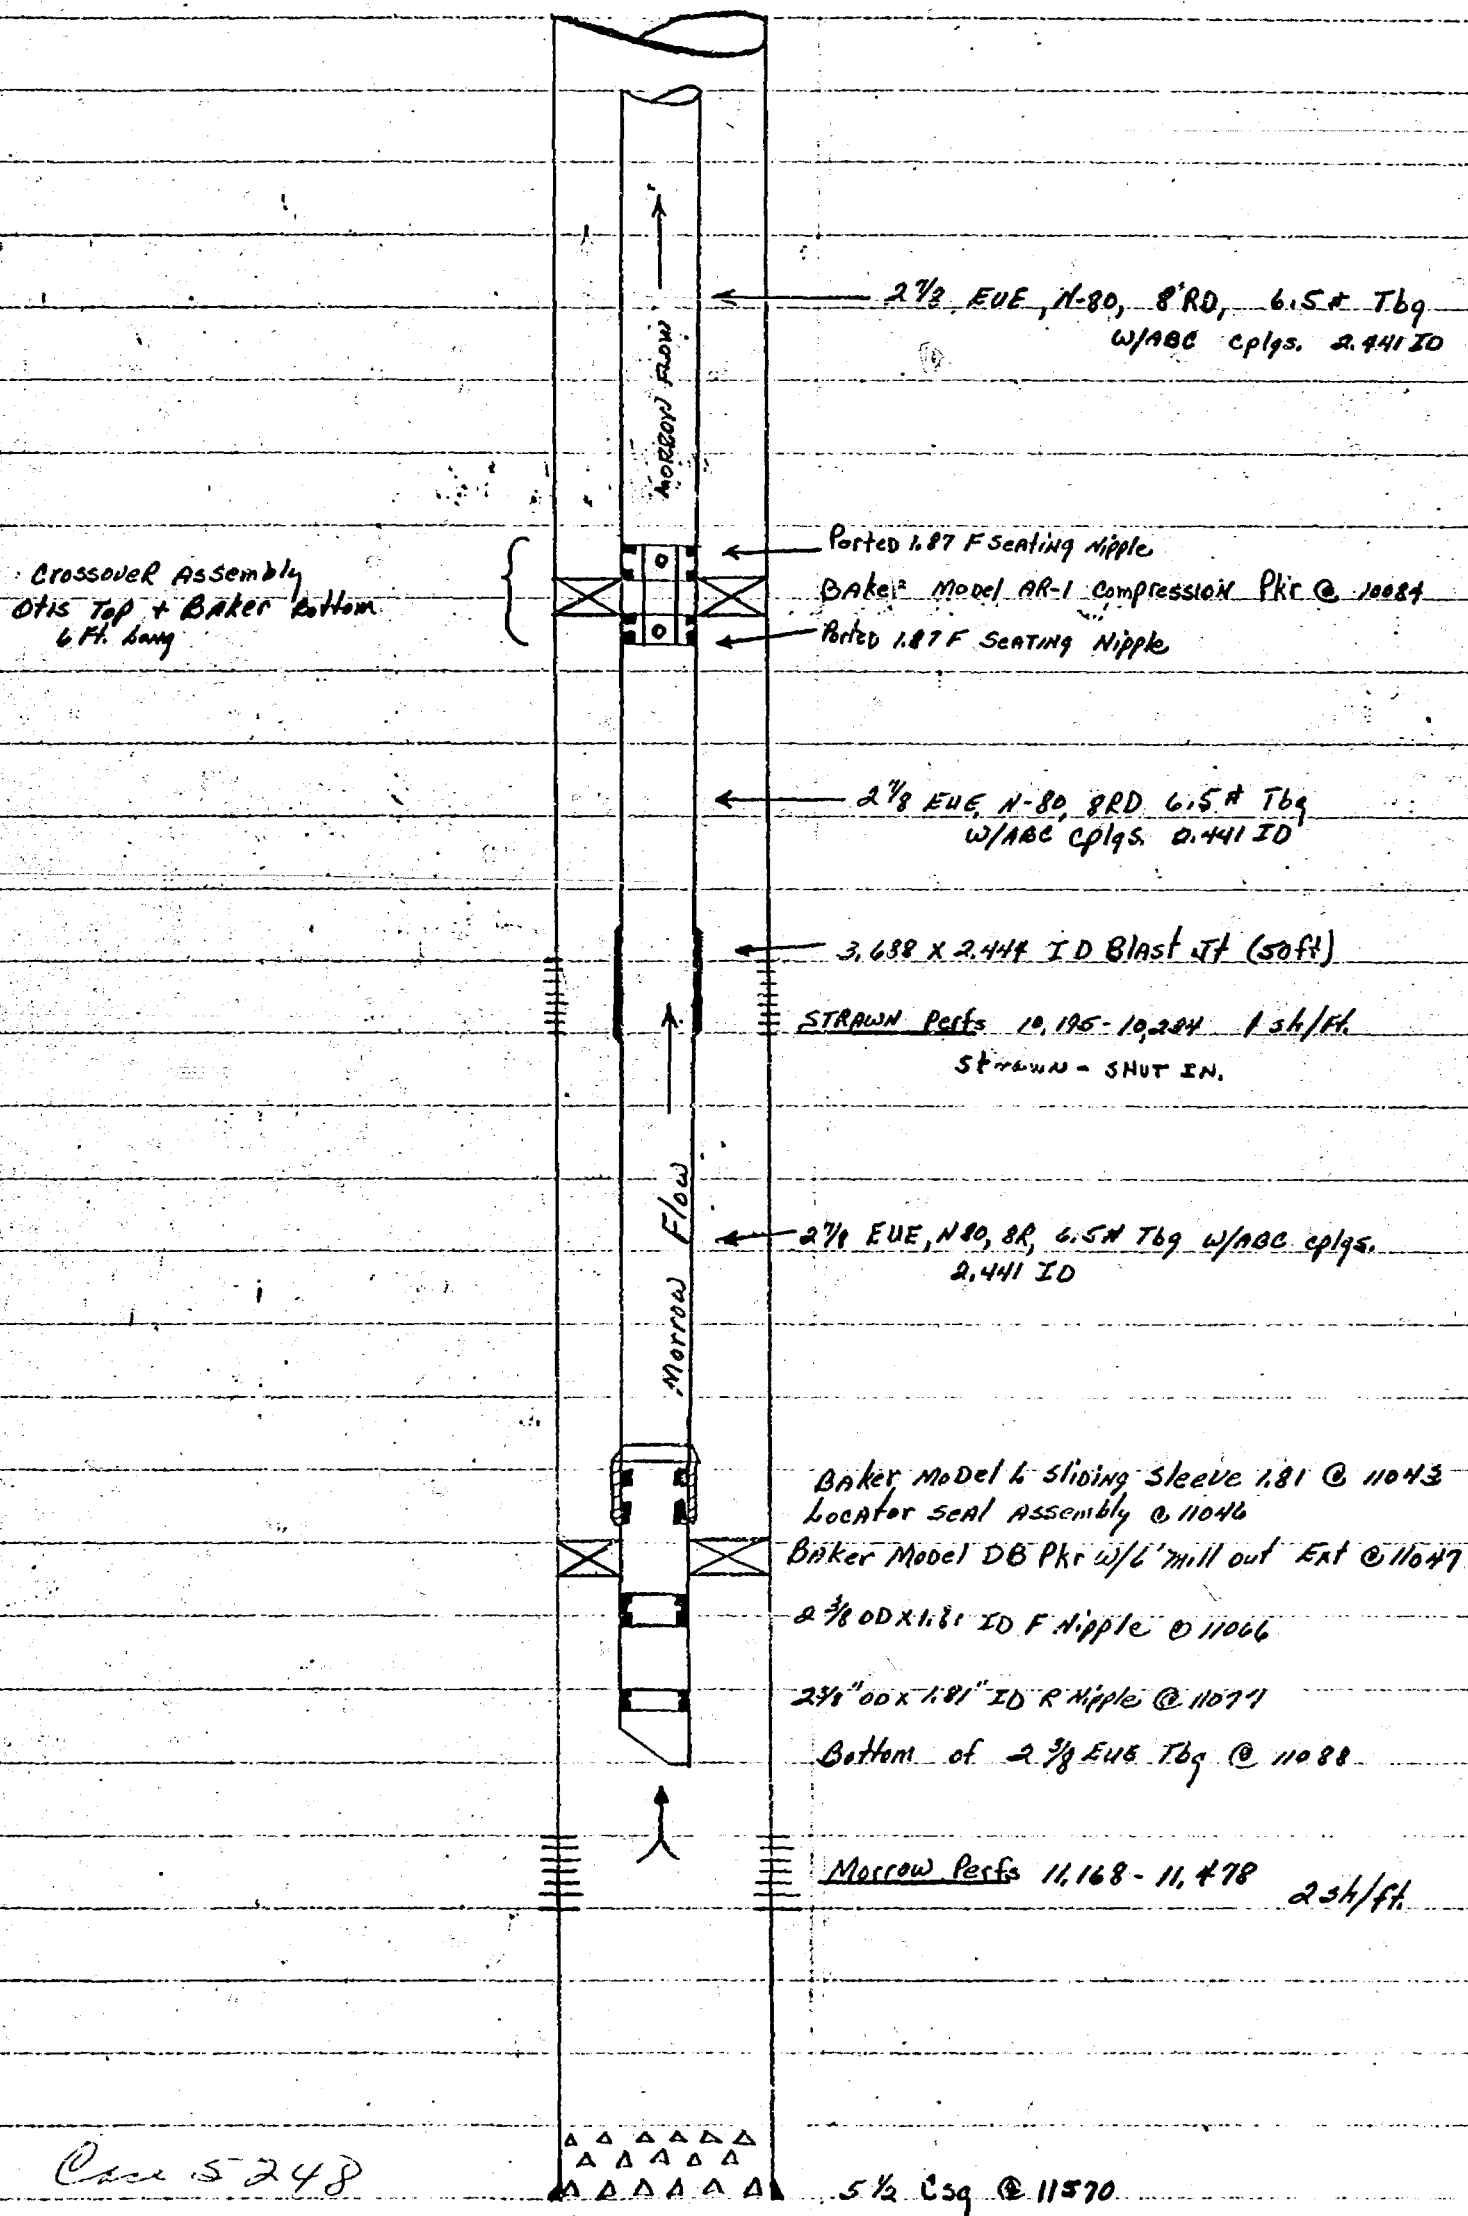 2 7/8 EUE, N-80, 8'RD, 6.5# Tbg
W/ABC cplgs. 2.441 ID
MORROW FLOW
Crossover Assembly
Otis Top + Baker Bottom
6 Ft. Long
Ported 1.87 F Seating Nipple
Baker Model AR-1 Compression Pkr @ 10084
Ported 1.87 F Seating Nipple
2 7/8 EUE, N-80, 8RD 6.5# Tbg
W/ABC cplgs. 2.441 ID
3.688 X 2.444 ID Blast Jt (50ft)
STRAWN Perfs 10,195-10,284 1 sh/Ft.
Strawn - SHUT IN.
Morrow Flow
2 7/8 EUE, N80, 8R, 6.5# Tbg W/ABC cplgs.
2.441 ID
Baker Model L Sliding Sleeve 1.81 @ 11043
Locator Seal Assembly @ 11046
Baker Model DB Pkr w/6' Mill out Ext @ 11047
2 3/8 OD X 1.81 ID F Nipple @ 11066
2 3/8" OD x 1.81" ID R Nipple @ 11077
Bottom of 2 3/8 EUE Tbg @ 11088
Morrow Perfs 11,168-11,478 2 sh/ft.
Case 5248
5 1/2 Csg @ 11570